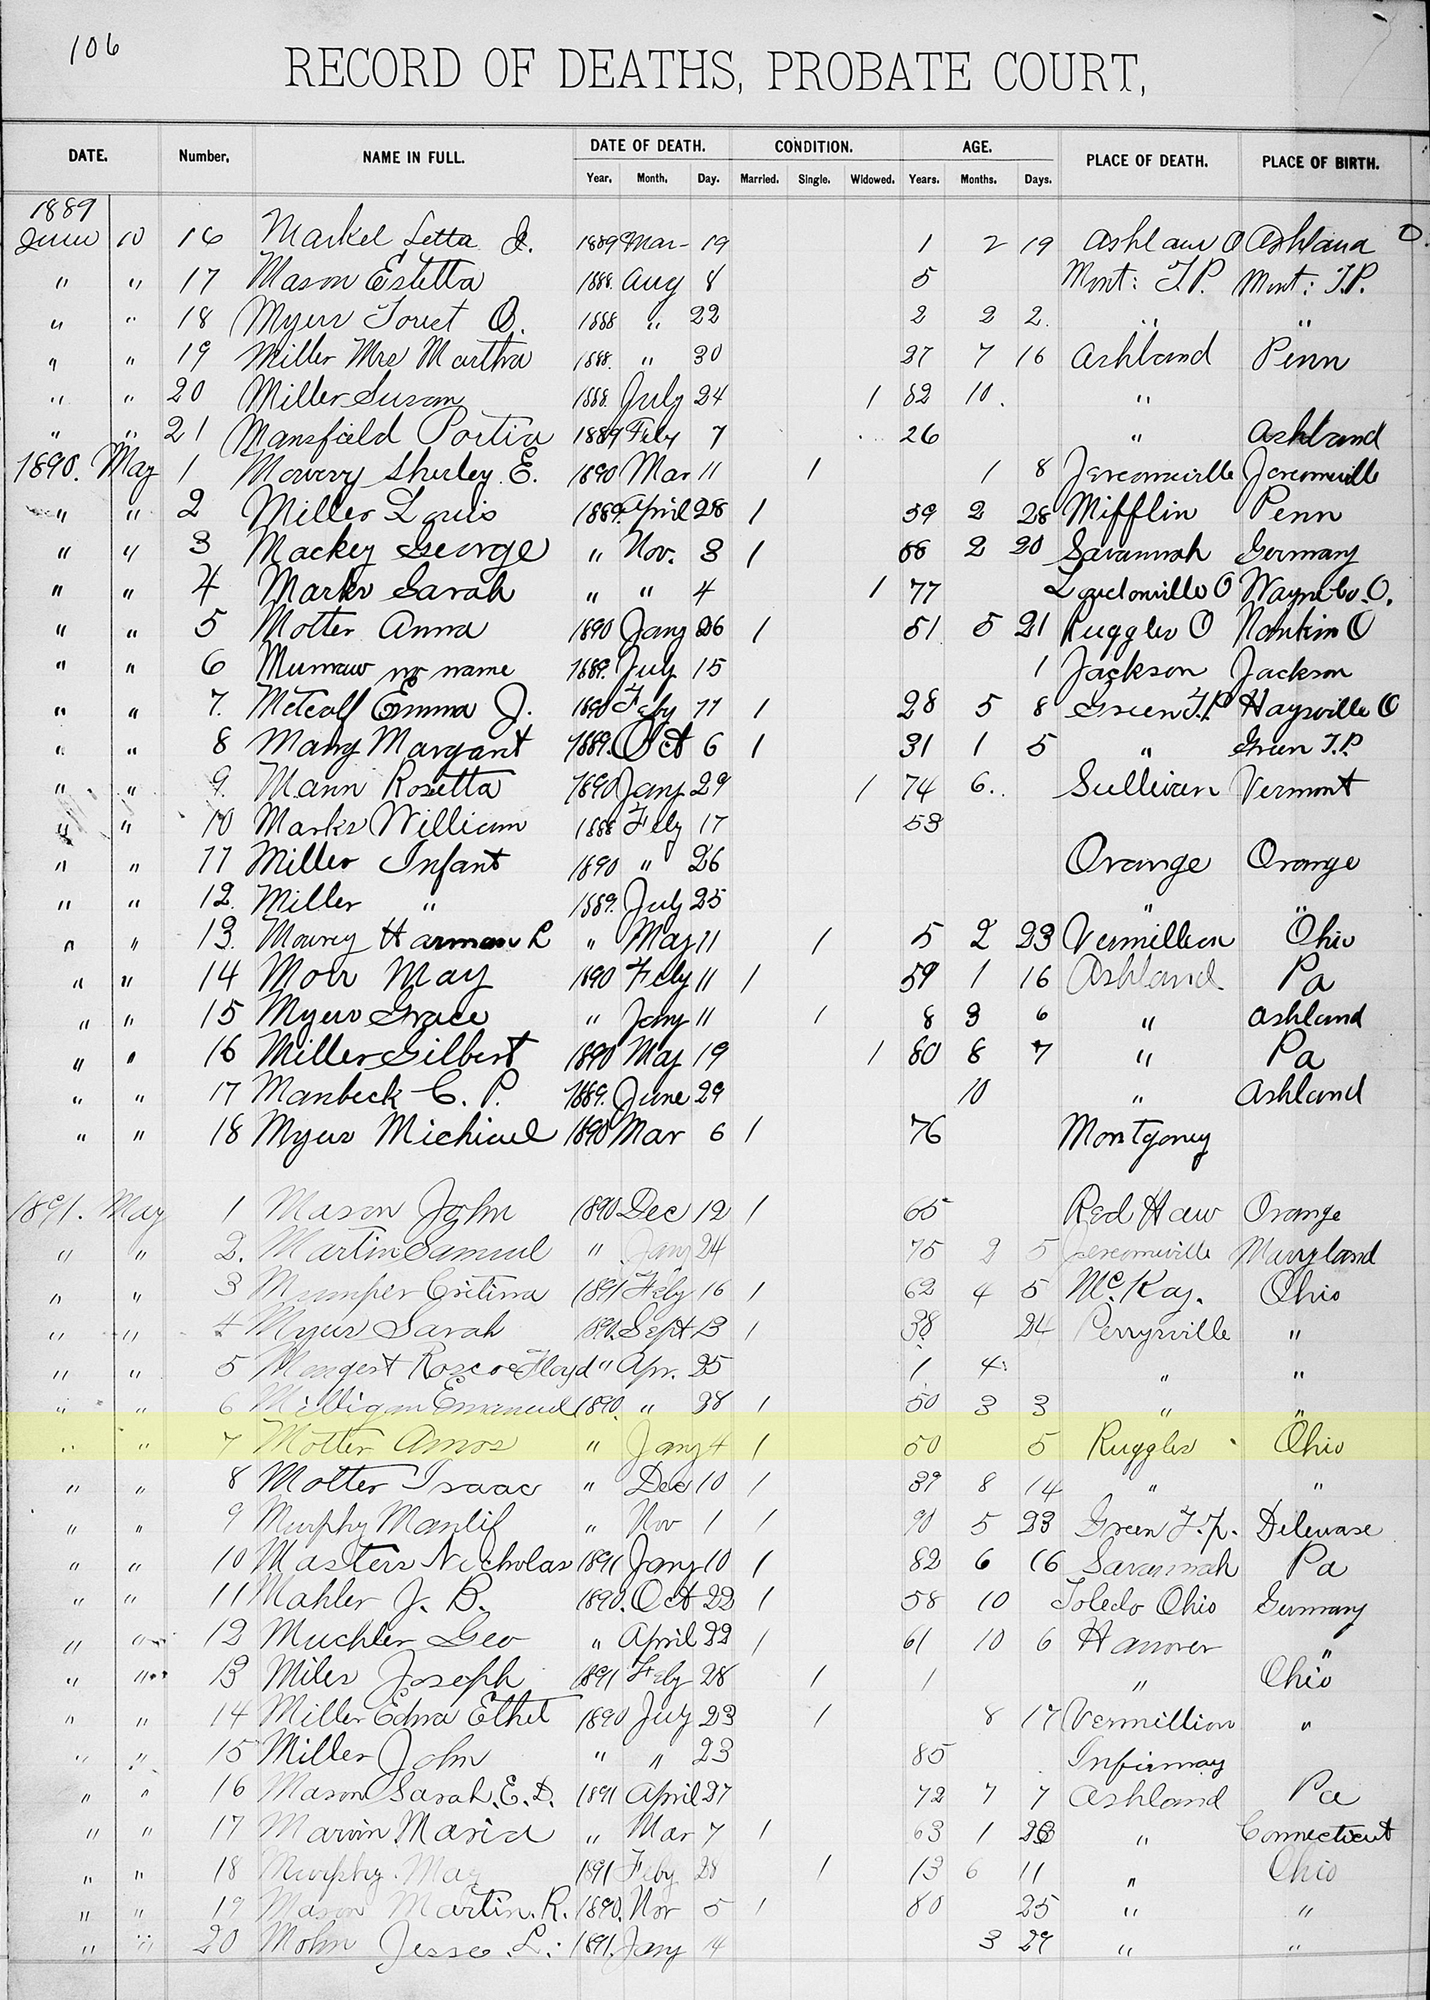 106
RECORD OF DEATHS, PROBATE COURT,
DATE. Number. NAME IN FULL. DATE OF DEATH. CONDITION. AGE. PLACE OF DEATH. PLACE OF BIRTH.
Year. Month. Day. Married. Single. Widowed. Years. Months. Days.
1889
June 10 16 Markel Letta J. 1889 Mar 19 1 2 19 Ashland O Ashland O.
" " 17 Mason Estetta 1888. Aug 8 5 Mont: T.P. Mont: T.P.
" " 18 Myers O. 1888 " 22 2 2 2. " "
" " 19 Miller Mrs Martha 1888. " 30 37 7 16 Ashland Penn
" " 20 Miller Susan 1888. July 24 1 82 10. "
" " 21 Mansfield Portia 1889 Feby 7 26 " Ashland
1890. May 1 Mowery Shirley E. 1890 Mar 11 1 1 8 Jeromeville Jeromeville
" " 2 Miller Louis 1889. April 28 1 59 2 28 Mifflin Penn
" " 3 Mackey George " Nov. 3 1 66 2 20 Savannah Germany
" " 4 Marks Sarah " " 4 1 77 Loudonville O Wayne Co. O.
" " 5 Motter Anna 1890 Jany 26 1 51 5 21 Ruggles O O
" " 6 Mumaw no name 1889. July 15 1 Jackson Jackson
" " 7. Metcalf Emma J. 1890 Feby 17 1 28 5 8 Green T.P Haysville O
" " 8 Mary Margant 1889. Oct 6 1 31 1 5 " Green T.P.
" " 9. Mann Rosetta 1890 Jany 29 1 74 6.. Sullivan Vermont
" " 10 Marks William 1888 Feby 17 53
" " 11 Miller Infant 1890 " 26 Orange Orange
" " 12. Miller " 1889. July 25 " "
" " 13. Mowrey Harman L " May 11 1 5 2 23 Vermillion Ohio
" " 14 Morr May 1890 Feby 11 1 59 1 16 Ashland Pa
" " 15 Myers Grace " Jany 11 1 8 3 6 " Ashland
" " 16 Miller Gilbert 1890 May 19 1 80 8 7 " Pa
" " 17 Manbeck C. P. 1889. June 29 10 " Ashland
" " 18 Myers Michieul 1890 Mar 6 1 76 Montgomey
1891. May 1 Mason John 1890 Dec 12 1 65 Red Haw Orange
" " 2. Martin Samuel " Jany 24 75 2 5 Jeromeville Maryland
" " 3 Mumper Critina 1891 Feby 16 1 62 4 5 Mc. Kay. Ohio
" " 4 Myers Sarah 1890. Sept 13 1 38 24 Perrysville "
" " 5 Mengert Roscoe Floyd " Apr. 25 1 4 " "
" " 6 Milligan Emanuel 1890. " 38 1 50 3 3 " "
" " 7 Motter Amos " Jany 4 1 50 5 Ruggles Ohio
" " 8 Motter Isaac " Dec 10 1 39 8 14 " "
" " 9 Murphy Manlif " Nov 1 1 90 5 23 Green T.P. Dilewase
" " 10 Masters Nicholas 1891 Jany 10 1 82 6 16 Savannah Pa
" " 11 Mahler J. B. 1890. Oct 22 1 58 10 Toledo Ohio Germany
" " 12 Muchler Geo " April 22 1 61 10 6 Hanover "
" " 13 Miles Joseph 1891 Feby 28 1 1 " Ohio
" " 14 Miller Edna Ethel 1890 July 23 1 8 17 Vermillion "
" " 15 Miller John " " 23 85 Infirmay
" " 16 Mason Sarah. E. D. 1891 April 27 72 7 7 Ashland Pa
" " 17 Marvin Maria " Mar 7 1 63 1 23 " Connecticut
" " 18 Murphy. May 1891 Feby 28 1 13 6 11 " Ohio
" " 19 Mason Martin. R. 1890. Nov 5 1 80 25 " "
" " 20 Mohn Jesse L. 1891. Jany 4 3 29 " "